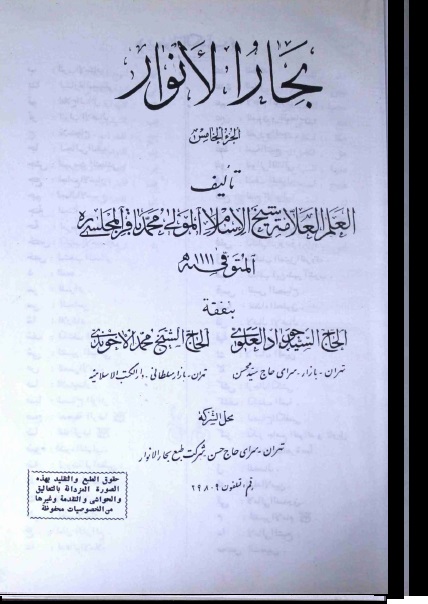 بحار الأنوار
الجزء الخامس
تأليف
العلم العلامة شيخ الإسلام المولى محمد باقر المجلسي ره
المتوفى ١١١١ ه
بنفقة
الحاج السيد جواد العلوي    الحاج الشيخ محمد الآخوندي
تهران - بازار - سرای حاج سید محسن    تهران - بازار سلطانی - دار الكتب الإسلامية
محل الشركة
تهران - سرای حاج حسن - شرکت طبع بحار الانوار
رقم تلفون ٢٩٨٠٩
حقوق الطبع والتقليد بهذه
الصورة المزدانة بالتعاليق
والحواشي والتقدمة وغيرها
من الخصوصيات محفوظة